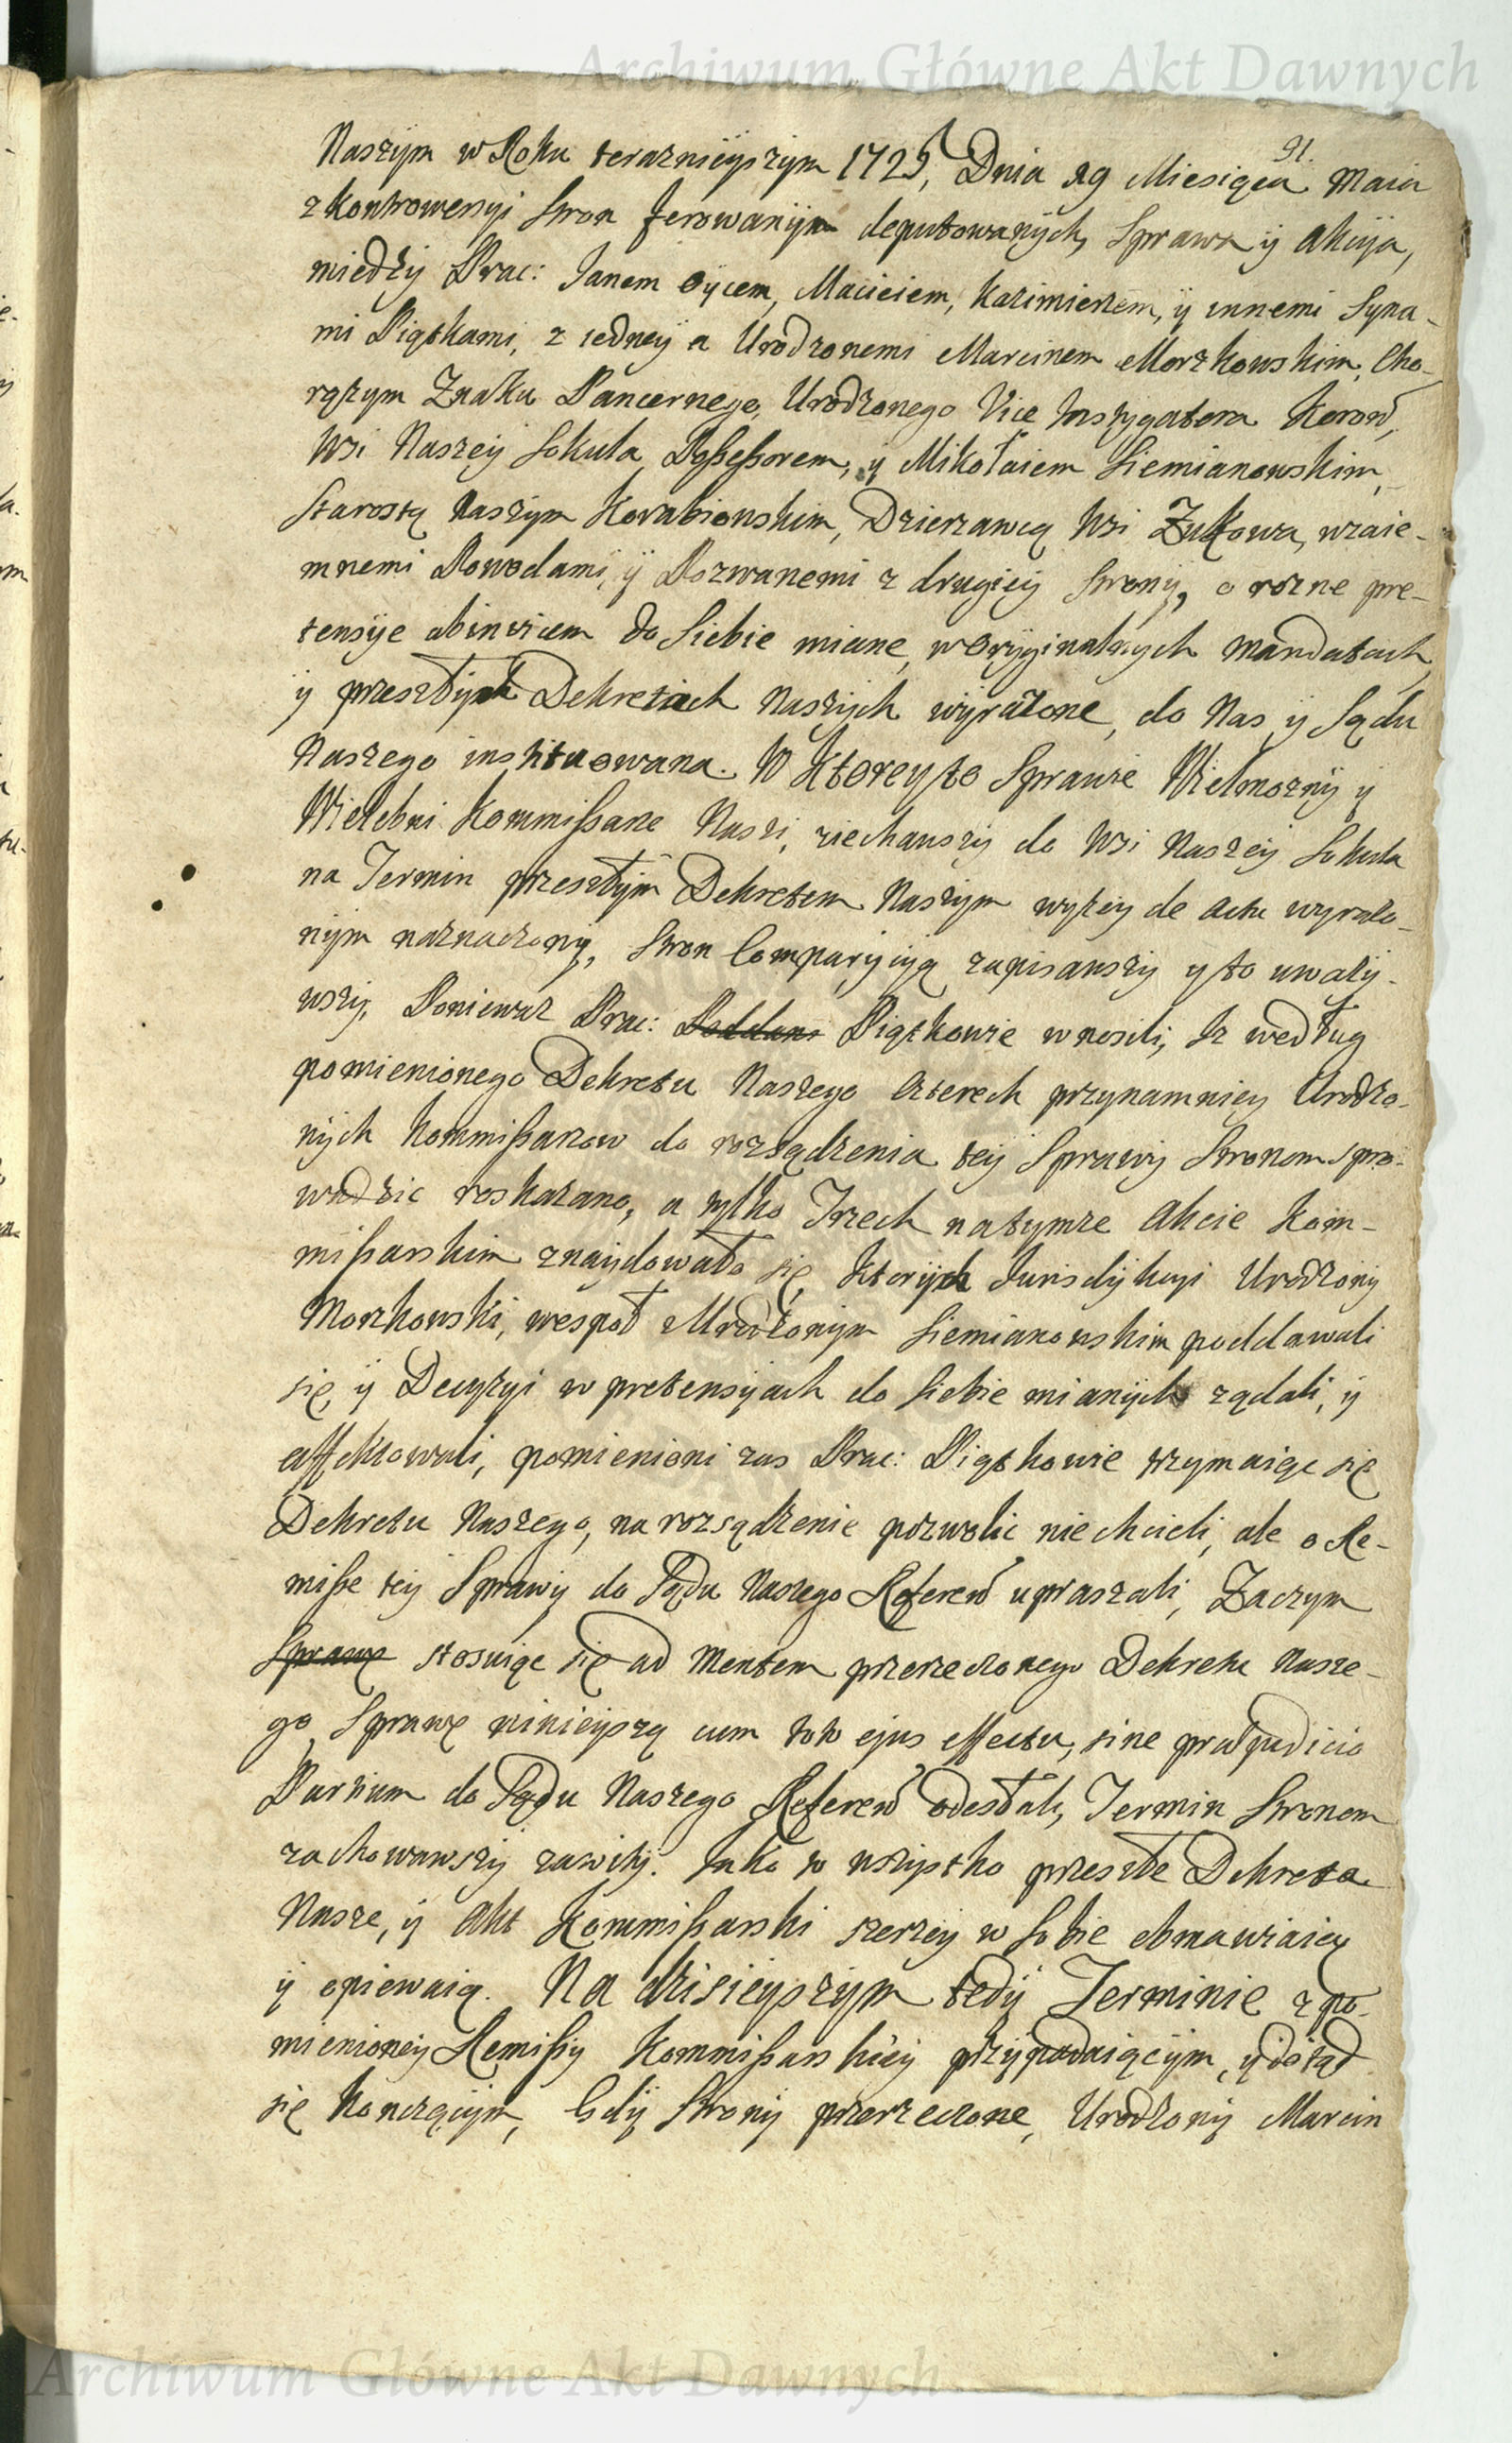 Archiwum Główne Akt Dawnych
91.
Naszym w Roku terazniejszym 1725, Dnia 29 Miesiąca Maia
z kontrowersyi stron ferowanym deputowanych, Sprawa ÿ Akcyja,
miedzÿ Prac: Janem Oÿcem, Macieiem, Kazimierzem, ÿ innemi Syna-
mi Piątkami, z iedneÿ a Urodzonemi Marcinem Morzkowskim, Cho-
rążym Znaku Pancernego, Urodzonego Vice Instygatora Koron̄,
Wsi Naszeÿ Sokula Poßeßorem, ÿ Mikołaiem Siemianowskim,
Starostą Naszym Korabiewskim, Dzierzawcą Wsi Zukowa, wzaie-
mnemi Powodami, ÿ Pozwanemi z drugieÿ stronÿ, o rozne pre-
tensÿe abinvicem do siebie miane, w oryginalnych mandatach,
ÿ przeszłÿch Dekretach Naszÿch wÿrażone, do Nas ÿ Sądu
Naszego instituowana. W ktorey to Sprawie Wielmoznÿ ÿ
Wielebni Kommißarze Nasi, ziechawszÿ do Wsi Naszeÿ Sokula
na Termin przeszłÿm Dekretem Naszÿm wyżeÿ de Actu wyrażo-
nÿm naznaczonÿ, stron Comparÿcÿą zapisawszÿ y to uważÿ-
wszÿ, Ponieważ Prac: Poddani Piątkowie wnosili, Iz według
pomienionego Dekretu Naszego Czterech przynamniey Urodzo-
nÿch Kommißarzow do rozsądzenia teÿ Sprawÿ stronom spro-
wadzic roskazano, a tylko Trzech na tymze Akcie Kom-
mißarskim znaÿdowało się, ktorÿch Jurisdÿkcyi Urodzonÿ
Morzkowski, wespoł z Urodzonÿm Siemianowskim poddawali
się, ÿ Decyzyi w pretensÿach do siebie mianÿch ządali, ÿ
affektowali, pomienieni zas Prac: Piątkowie trzymaiąc się
Dekretu Naszego, na rozsądzenie pozwolic nie chcieli, ale o Re-
miße teÿ Sprawÿ do Sądu Naszego Referen̄ upraszali, Zaczym
Sprawę stosuiąc się ad Mentem przerzeczonego Dekretu Nasze-
go, Sprawę ninieÿszą cum toto ejus effectu, sine præjudicio
Partium do Sądu Naszego Referen̄ odesłali, Termin stronom
zachowawszÿ zawitÿ. Iako to wszystko przeszłe Dekreta
Nasze, ÿ Akt Kommißarski szerzeÿ w sobie obmawiaią
ÿ opiewaią. Na dzisieÿszÿm tedÿ Terminie z po-
mienioneÿ Remißÿ Kommißarskieÿ przÿpadaiącÿm, ÿ dotąd
się kończącÿm, Gdÿ stronÿ przerzeczone, Urodzonÿ Marcin
Archiwum Główne Akt Dawnych